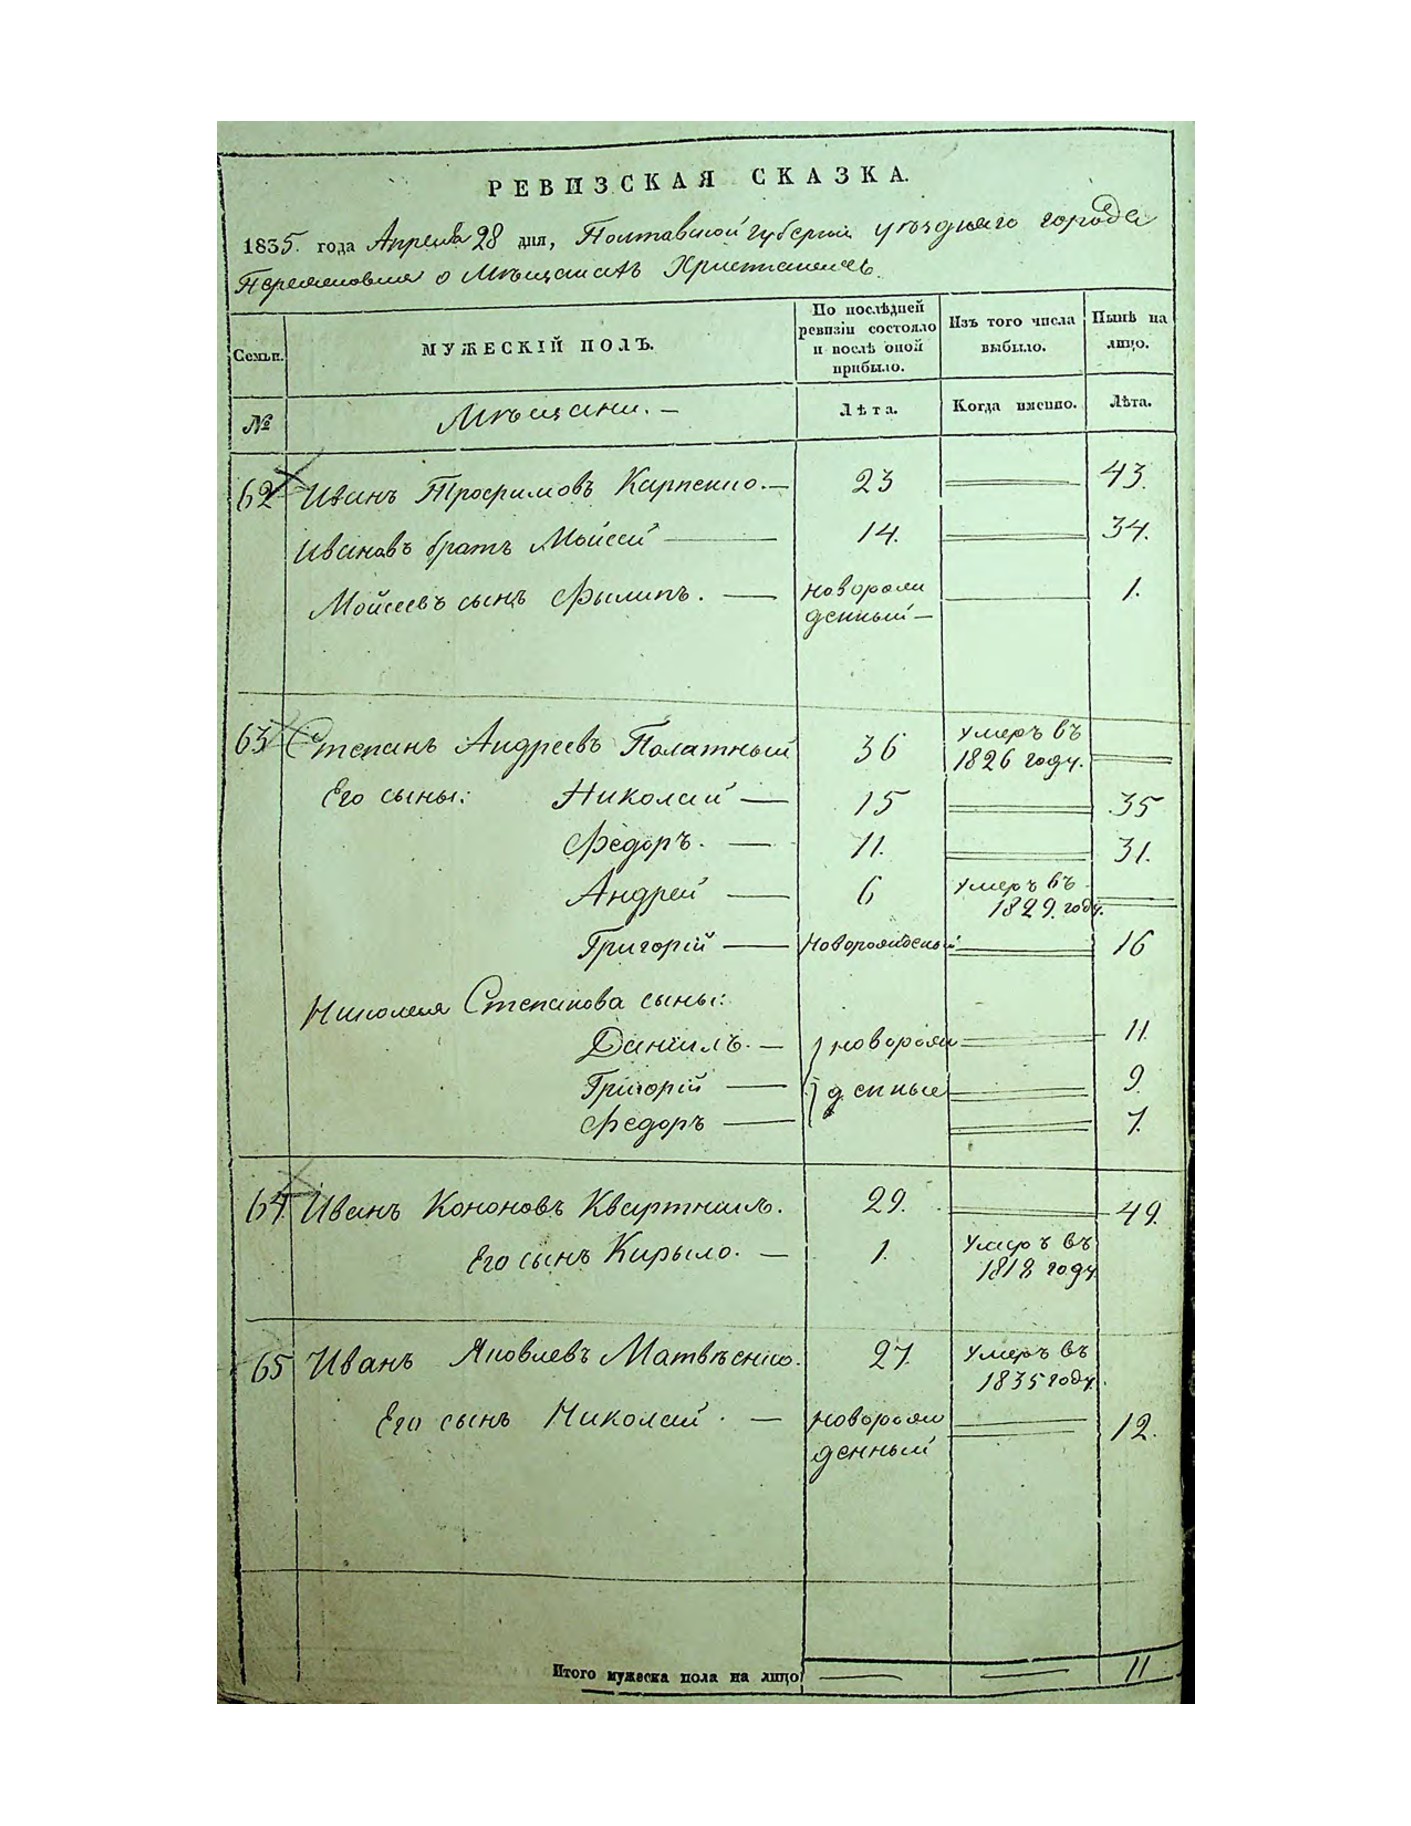 РЕВИЗСКАЯ СКАЗКА.
1835. года Апреля 28 дня, Полтавской губернии уѣзднаго города
о Мѣщанахъ Христианехъ
Семьи.
МУЖЕСКІЙ ПОЛЪ.
По послѣдней ревизіи состояло и послѣ оной прибыло.
Изъ того числа выбыло.
Нынѣ на лицо.
№
Мѣщани. —
Лѣта.
Когда именно.
Лѣта.
62 Иванъ Трофимовъ Карпенко. — 23 43.
Ивановъ братъ Мойсей — 14. 34.
Мойсеевъ сынъ Филипъ. — новорож 1.
денный —
63 Степанъ Андреевъ Полатный 36 умеръ въ
1826 году.
Его сыны: Николай — 15 35
Федоръ. — 11. 31.
Андрей — 6 умеръ въ
1829. году.
Григорій — Новорожденый 16
Николая Степанова сыны:
Даніилъ. — новорож 11
Григорій — денные 9.
Федоръ — 7.
64. Иванъ Кононовъ Квартникъ. 29. 49.
Его сынъ Кирыло. — 1. Умеръ въ
1818 году
65 Иванъ Яковлевъ Матвѣенко. 27. умеръ въ
1835 году.
Его сынъ Николай. — новорож 12.
денный
Итого мужеска пола на лицо — — 11